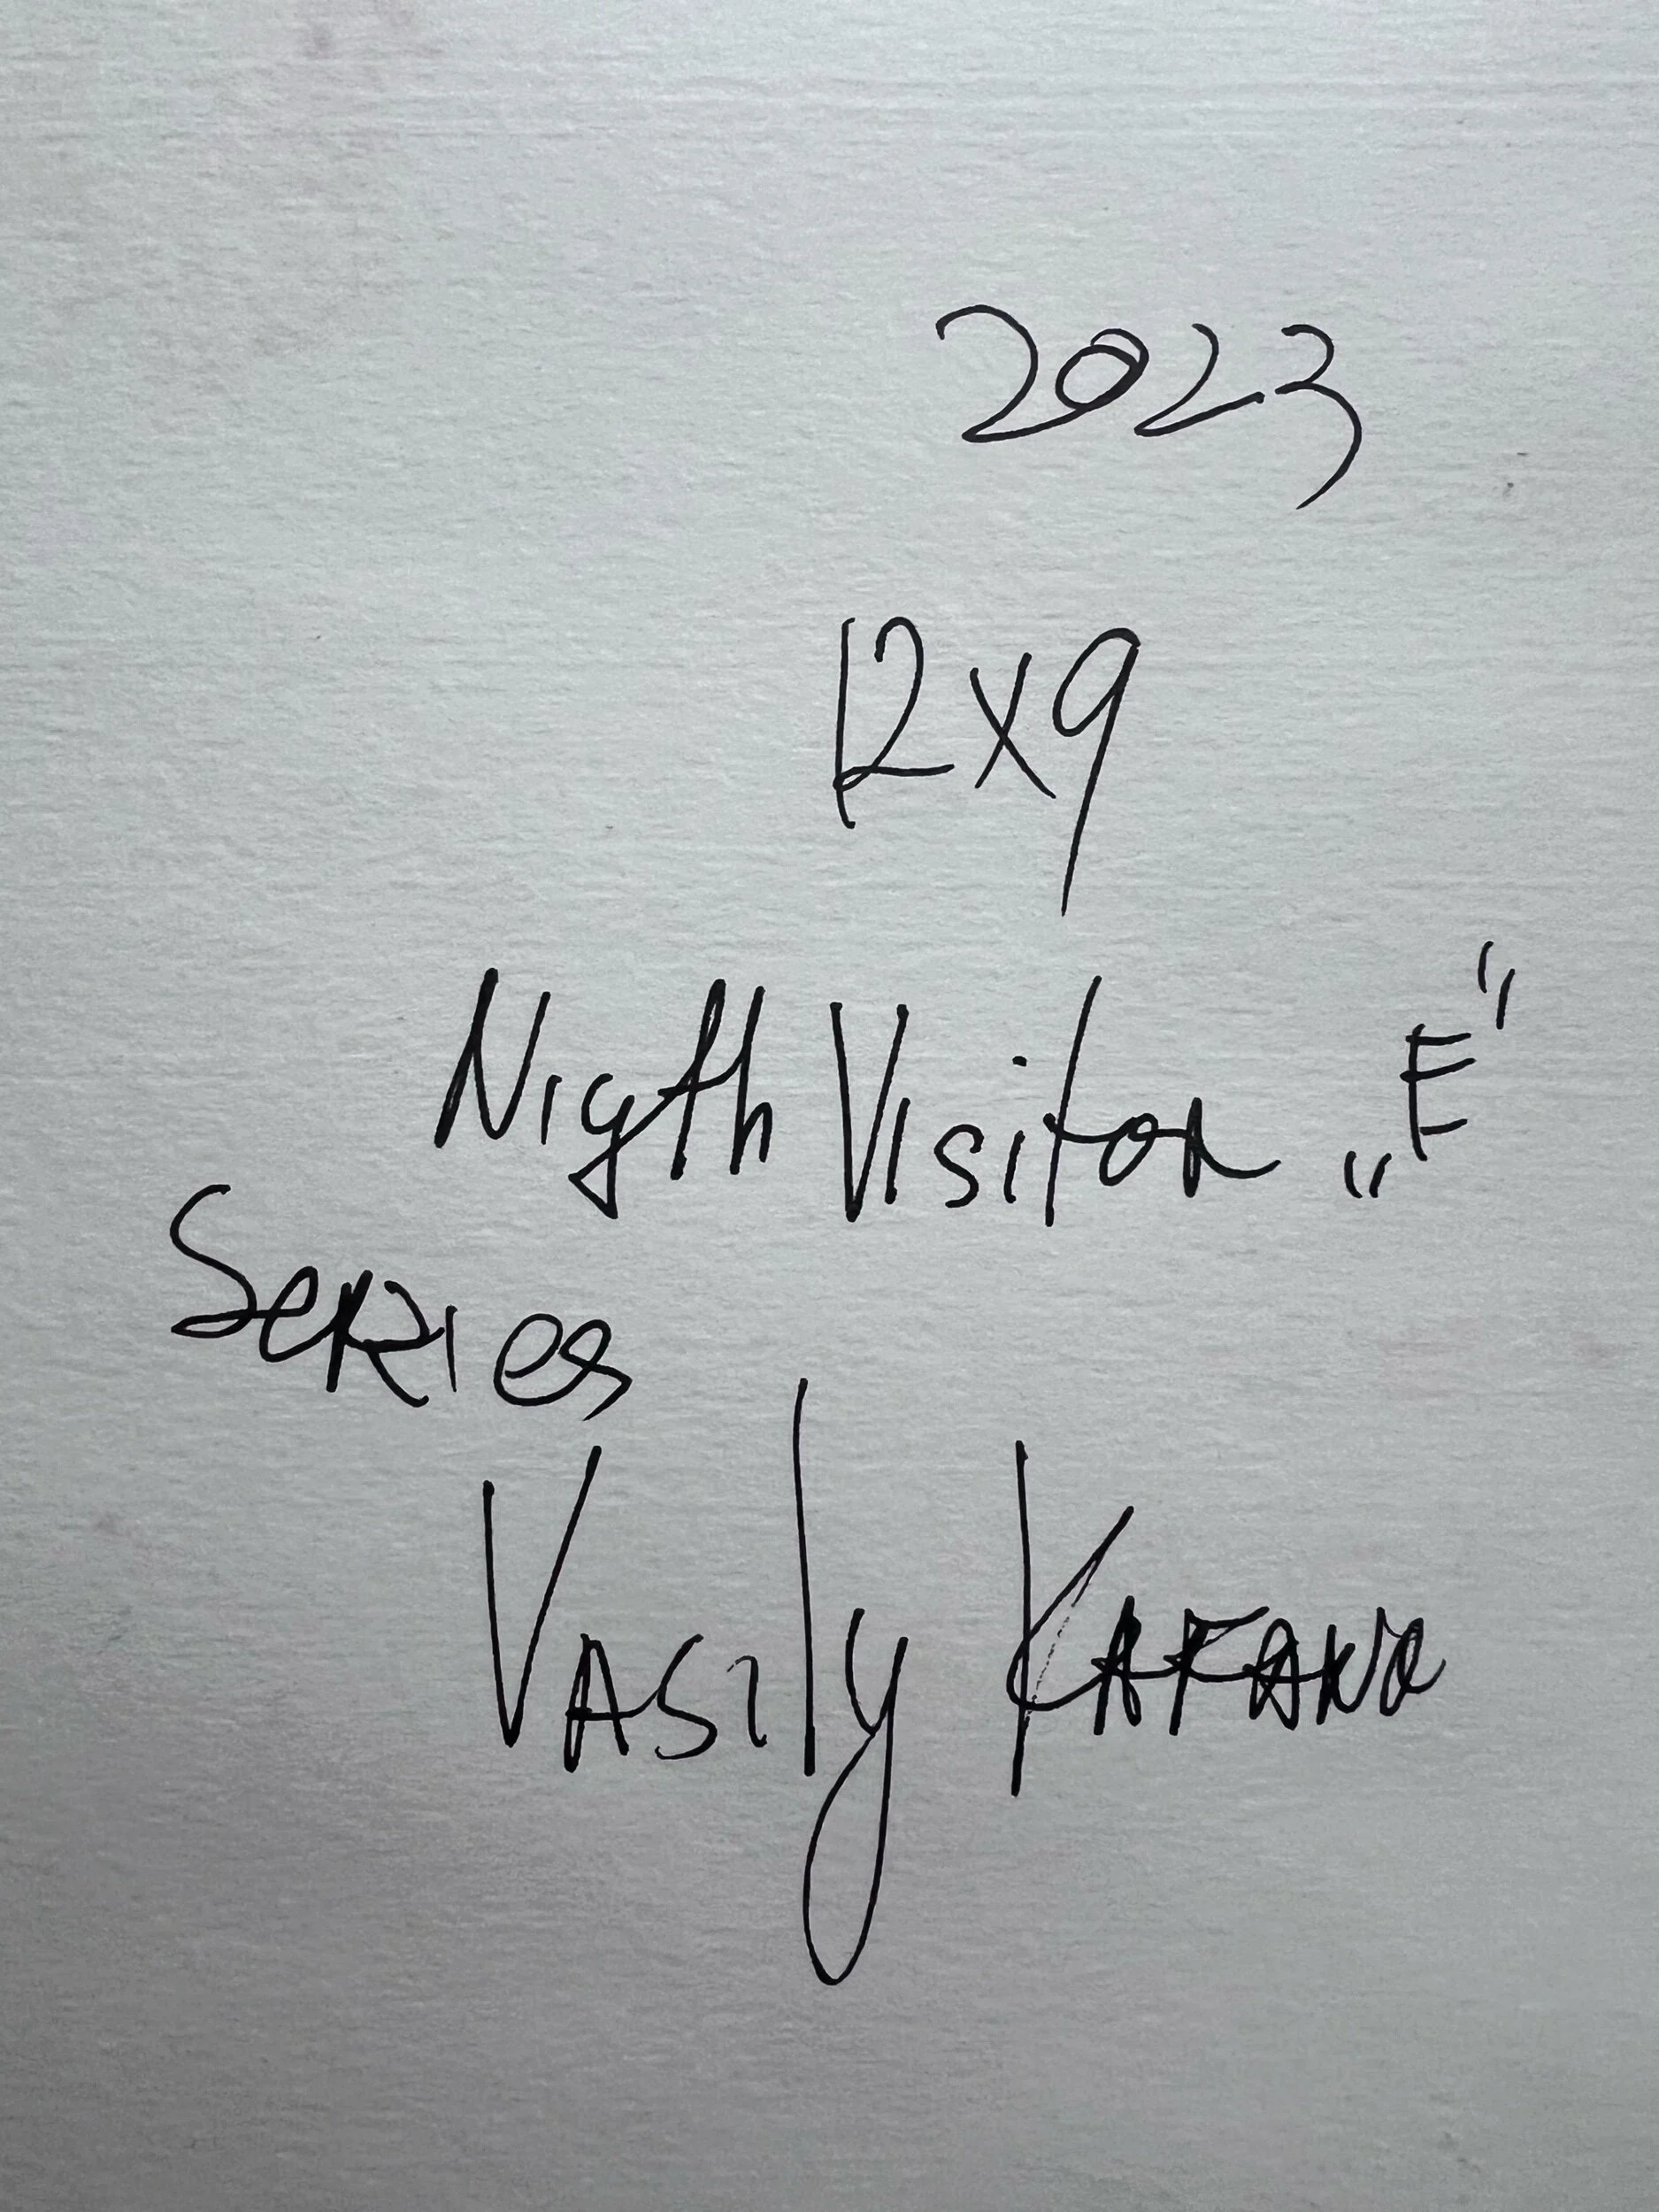 2023
12x9
Nigth Visitor „E"
Series
Vasily Kafano